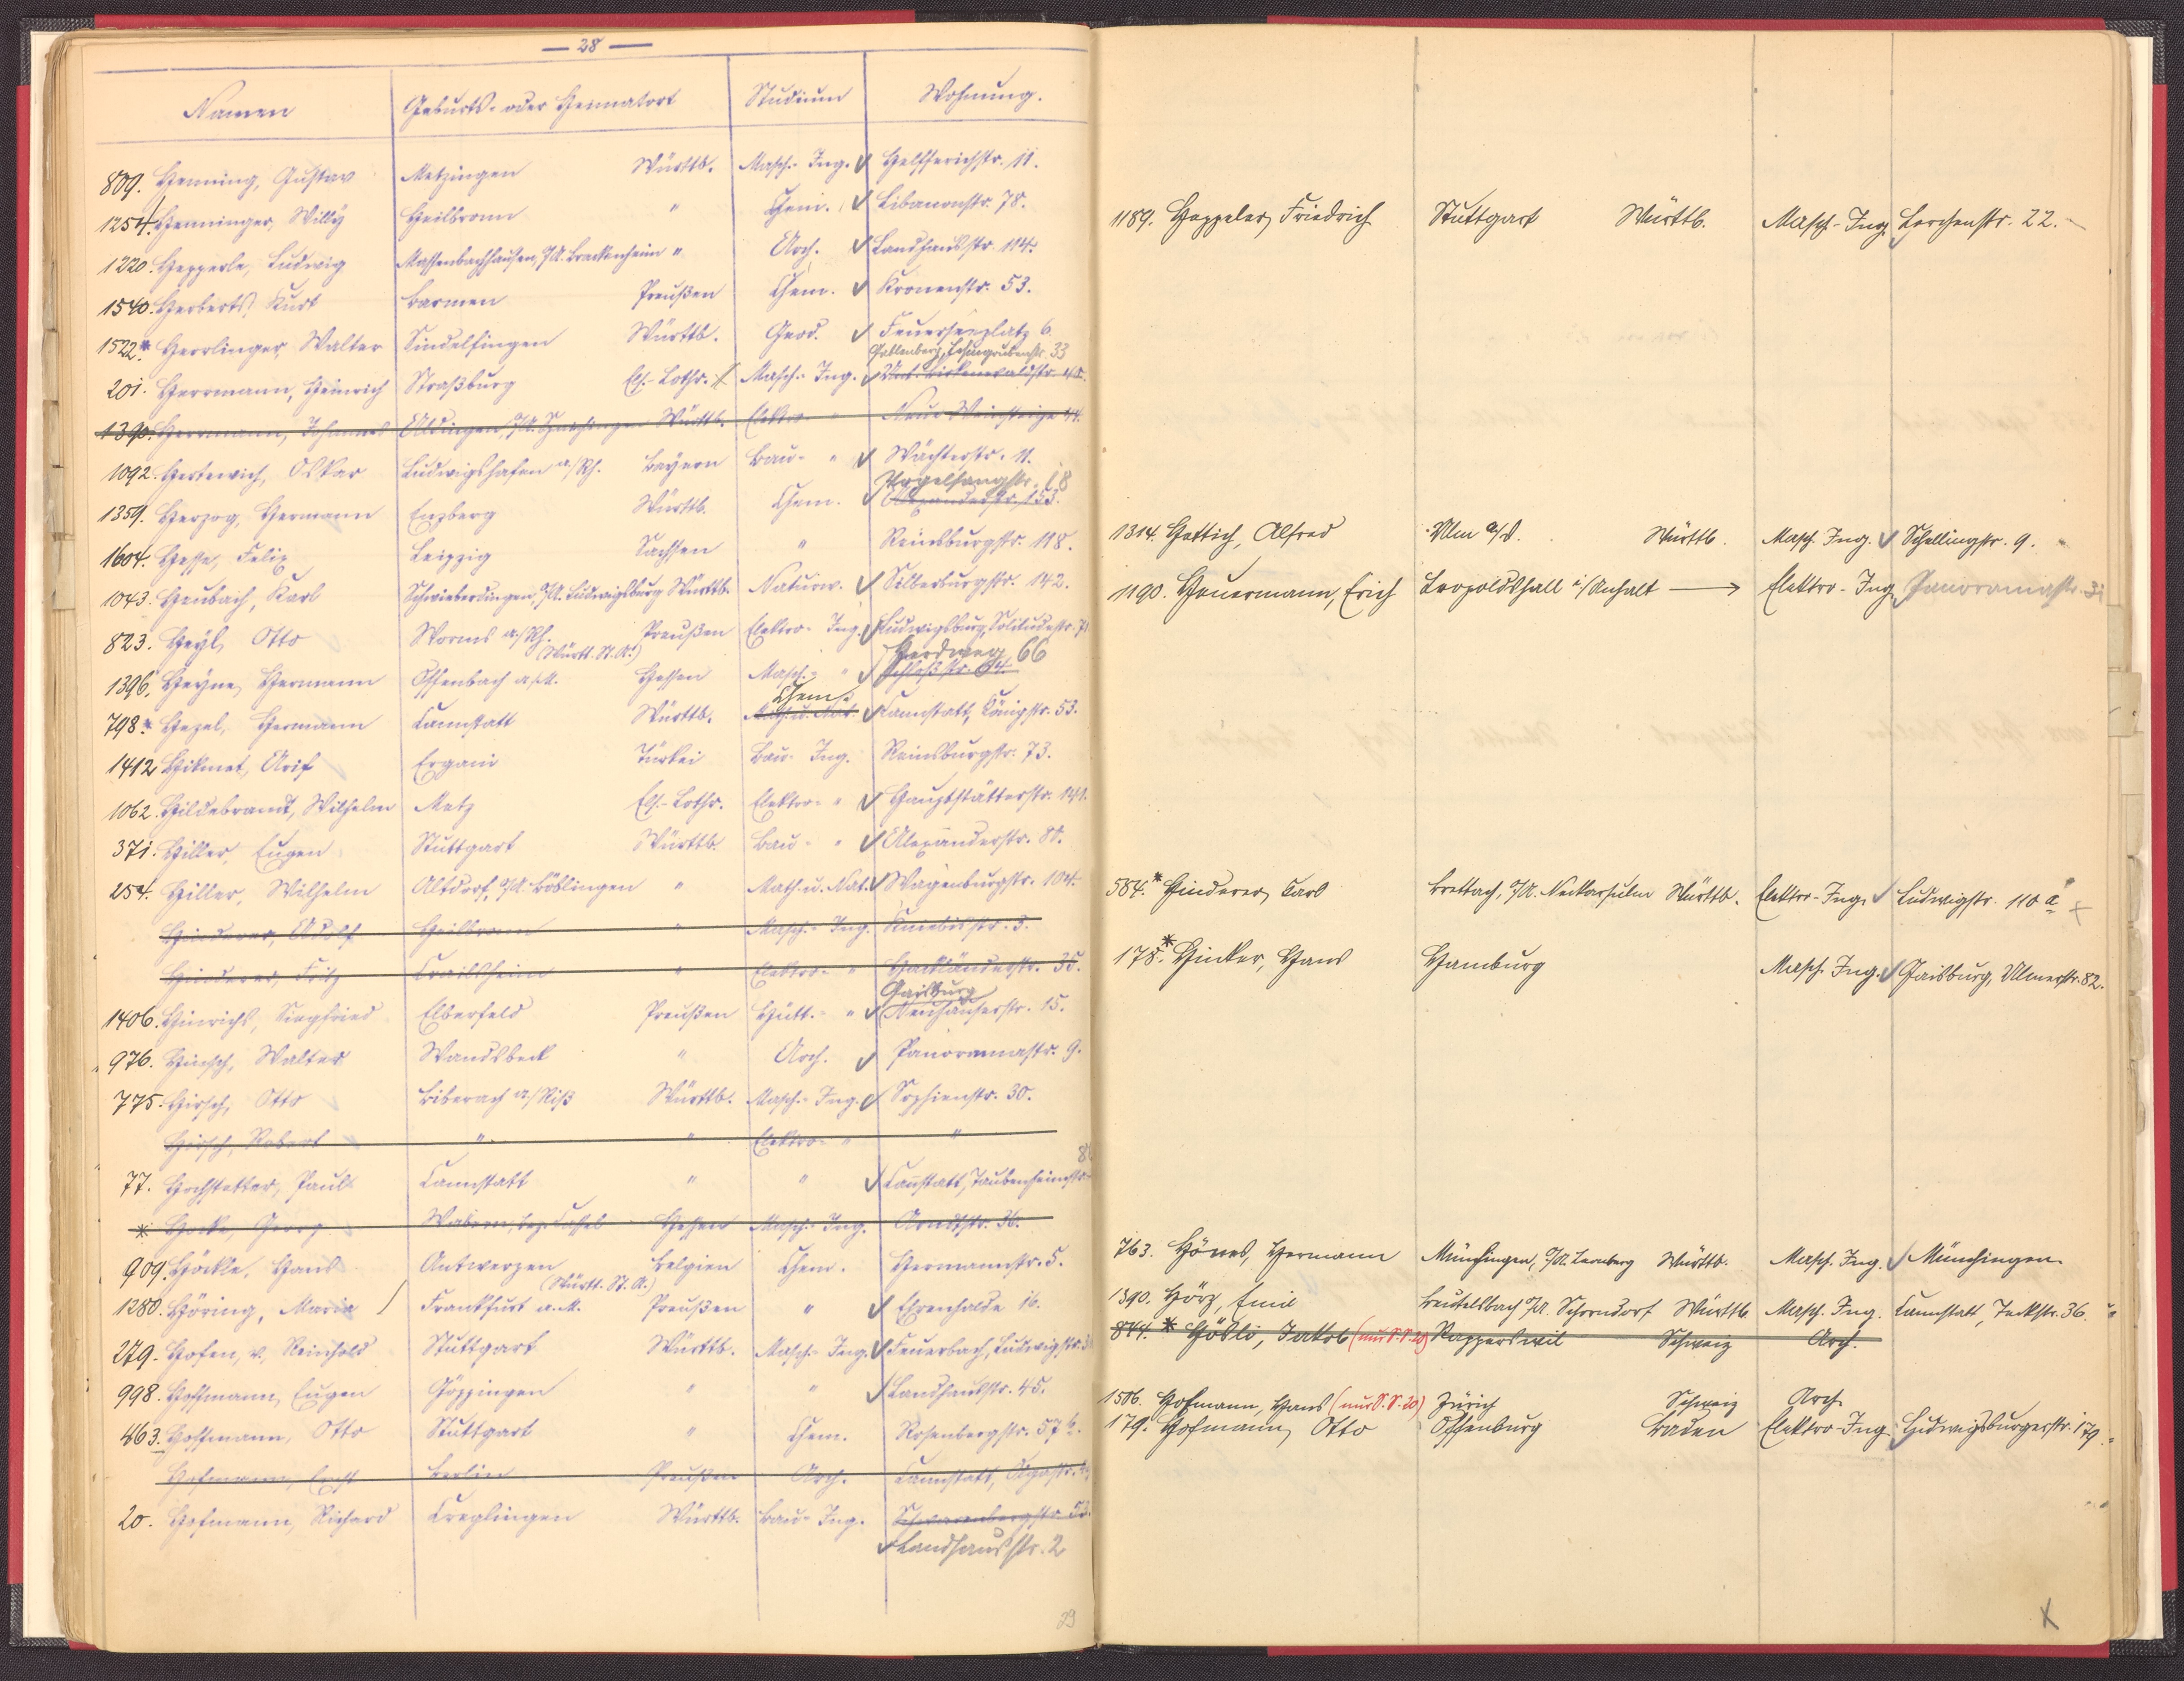 — 28 —
Namen Geburts- oder Heimatort Studium Wohnung.
809. Henning, Gustav Metzingen Württb. Masch.- Ing. Helfferichstr. 11.
1254. Henninger, Willy Heilbronn " Chem. Libanonstr. 78.
1220. Hepperle, Ludwig Massenbachhausen, O/A. Brackenheim " Arch. Landhausstr. 114.
1540. Herberts, Kurt Barmen Preußen Chem. Kronenstr. 53.
1522.* Herrlinger, Walter Sindelfingen Württb. Geod. Feuerseeplatz 6.
Gablenberg, Lehmgrubenstr. 33
201. Herrmann, Heinrich Straßburg Els.-Lothr. Masch.- Ing. Unt. Birkenwaldstr.
1390. Herrmann, Johannes Aldingen, O/A. Spaichingen Württb. Elektro- " Neue Weinsteige 44.
1092. Hertewich, Oskar Ludwigshafen a/Rh. Bayern Bau- " Wächterstr. 11.
Vogelsangstr. 18
1359. Herzog, Hermann Enzberg Württb. Chem. Alexanderstr. 153.
1604. Hesse, Felix Leipzig Sachsen " Reinsburgstr. 118.
1043. Heubach, Karl Schwieberdingen, O/A. Ludwigsburg Württb. Naturw. Silberburgstr. 142.
823. Heyl, Otto Worms a./Rh. Preußen Elektro- Ing. Ludwigsburg, Solitudestr.
(Württ. St. A.) Herdweg 66
1396. Heyne, Hermann Offenbach a./M. Hessen Masch.- " Schloßstr. 64.
Chem.
798.* Hezel, Hermann Cannstatt Württb. Math. u. Nat. Cannstatt, Königstr. 53.
1412 Hikmet, Arif Ergani Türkei Bau- Ing. Reinsburgstr. 73.
1062. Hildebrandt, Wilhelm Metz Els.-Lothr. Elektro- " Hauptstätterstr. 141.
371. Hiller, Eugen Stuttgart Württb. Bau- " Alexanderstr. 81.
254. Hiller, Wilhelm Altdorf, O/A. Böblingen " Math. u. Nat. Wagenburgstr. 104.
Hinderer, Adolf Heilbronn " Masch.- Ing. Kniebisstr. 3.
Hinderer, Fritz Crailsheim " Elektro- " Hackländerstr. 35.
Gaisburg
1406. Hinrichs, Siegfried Elberfeld Preußen Hütt.- " Neuhauserstr. 15.
976. Hinsch, Walter Wandsbeck " Arch. Panoramastr. 9.
775. Hirsch, Otto Biberach a/Riß Württb. Masch.- Ing. Sophienstr. 30.
Hirsch, Robert " " Elektro- " "
77. Hochstetter, Paul Cannstatt " " Cannstatt, Taubenheimstr.
* Hocke, Georg Wabern, bez. Cassel Hessen Masch.- Ing. Arndtstr. 36.
909. Höckle, Hans Antwerpen Belgien Chem. Hermannstr. 5.
(Württ. St. A.)
1280. Höring, Maria Frankfurt a.M. Preußen " Ehrenhalde 16.
279. Hofen, v. Reinhold Stuttgart Württb. Masch.- Ing. Feuerbach, Ludwigstr.
998. Hoffmann, Eugen Göppingen " " Landhausstr. 45.
463. Hoffmann, Otto Stuttgart " Chem. Rosenbergstr. 57 b.
Hofmann, Ernst Berlin Preußen Arch. Cannstatt, Olgastr.
20. Hofmann, Richard Creglingen Württb. Bau- Ing. Schwarenbergstr.
Landhausstr. 2
29
1189. Heppeler, Friedrich Stuttgart Württb. Masch.-Ing. Lerchenstr. 22.
1314. Hettich, Alfred Ulm a/D. Württb. Masch. Ing. Schellingstr. 9.
1190. Heuermann, Erich Leopoldshall i/Anhalt → Elektro- Ing. Panoramastr.
584.* Hinderer, Carl Brettach, O/A. Neckarsulm Württb. Elektro-Ing. Ludwigstr. 110 a
178.* Hinker, Hans Hamburg Masch. Ing. Gaisburg, Ulmerstr. 82.
763. Hönes, Hermann Münchingen, O/A. Leonberg Württb. Masch. Ing. Münchingen
1390. Hörz, Emil Beutelsbach O/A. Schorndorf Württb. Masch. Ing. Cannstatt, Teckstr. 36
844. * Hösli, Jakob (nur S.S. 20) Rapperswil Schweiz Arch.
1506. Hofmann, Hans (nur S.S. 20) Zürich Schweiz Arch.
179. Hofmann, Otto Offenburg Baden Elektro-Ing. Ludwigsburgerstr. 179.
X